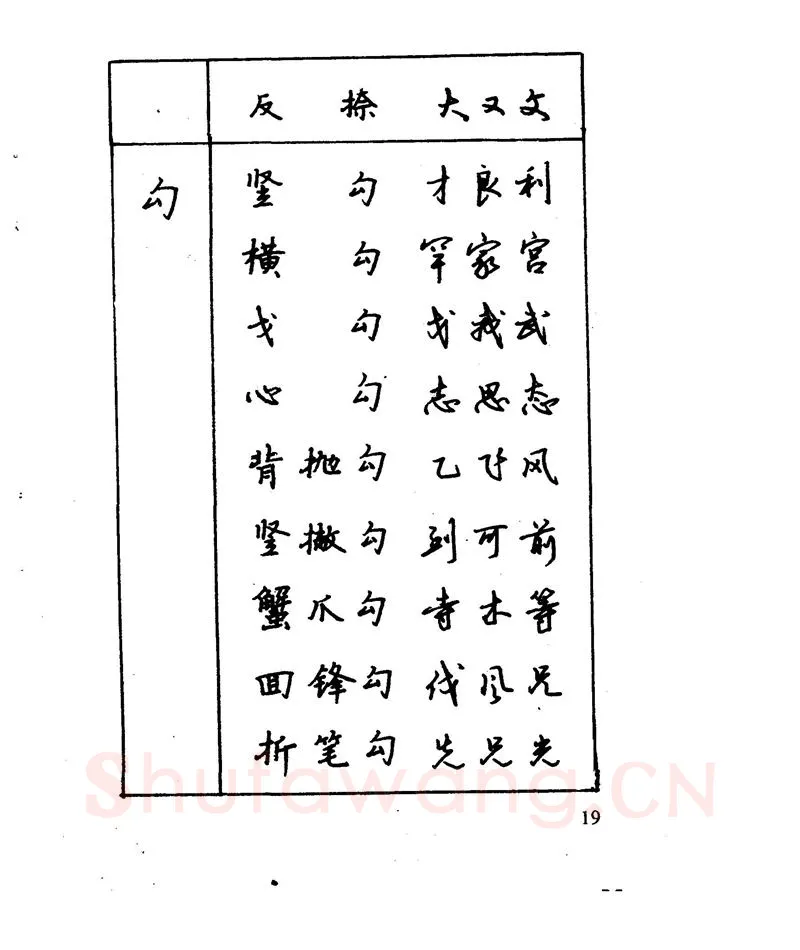 反 捺 大又文
勾 竖 勾 才良利
横 勾 罕家宫
戈 勾 戈我武
心 勾 志思态
背抛勾 乙飞风
竖撇勾 到可前
蟹爪勾 寺木等
回锋勾 伐风兄
折笔勾 先兄光
Shufawang.CN
19